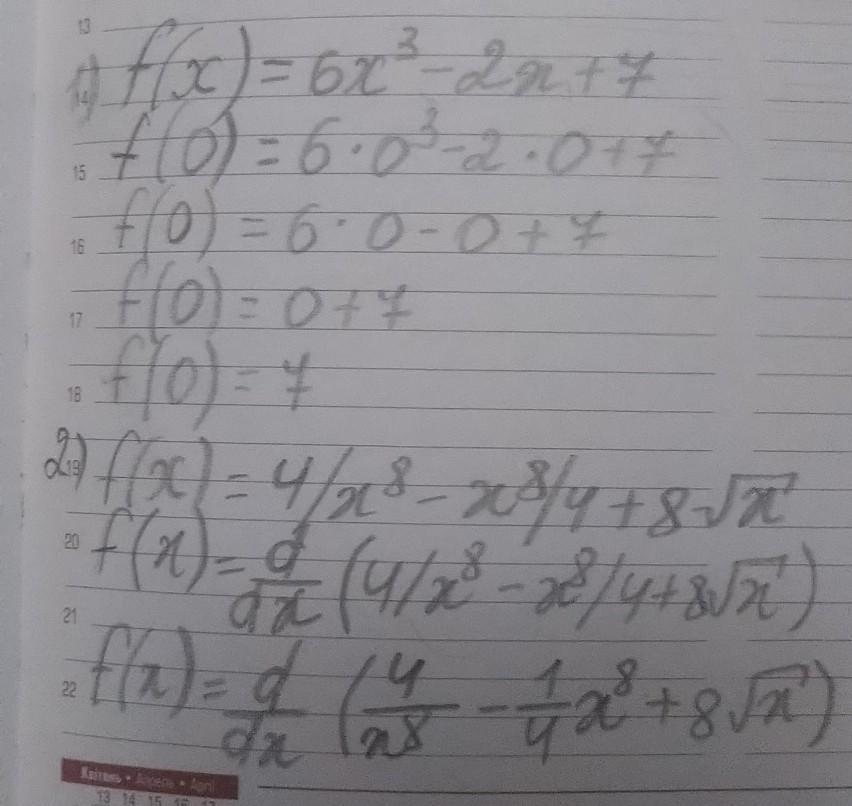 13
1) f(x) = 6x³ - 2x + 7
14
f(0) = 6 · 0³ - 2 · 0 + 7
15
f(0) = 6 · 0 - 0 + 7
16
f(0) = 0 + 7
17
f(0) = 7
18
2) f(x) = 4/x⁸ - x⁸/4 + 8√x
19
f(x) = d/dx (4/x⁸ - x⁸/4 + 8√x)
20
21
f(x) = d/dx (4/x⁸ - 1/4 x⁸ + 8√x)
22
Квітень • Апрель • April
13 14 15 16 17